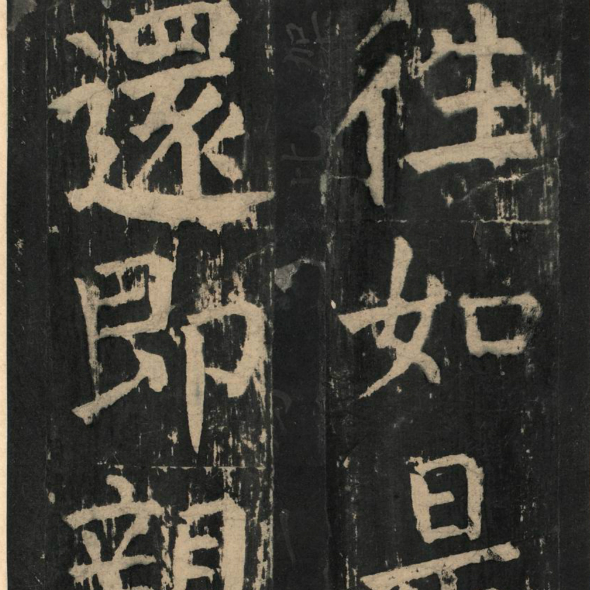 往如是
還即親